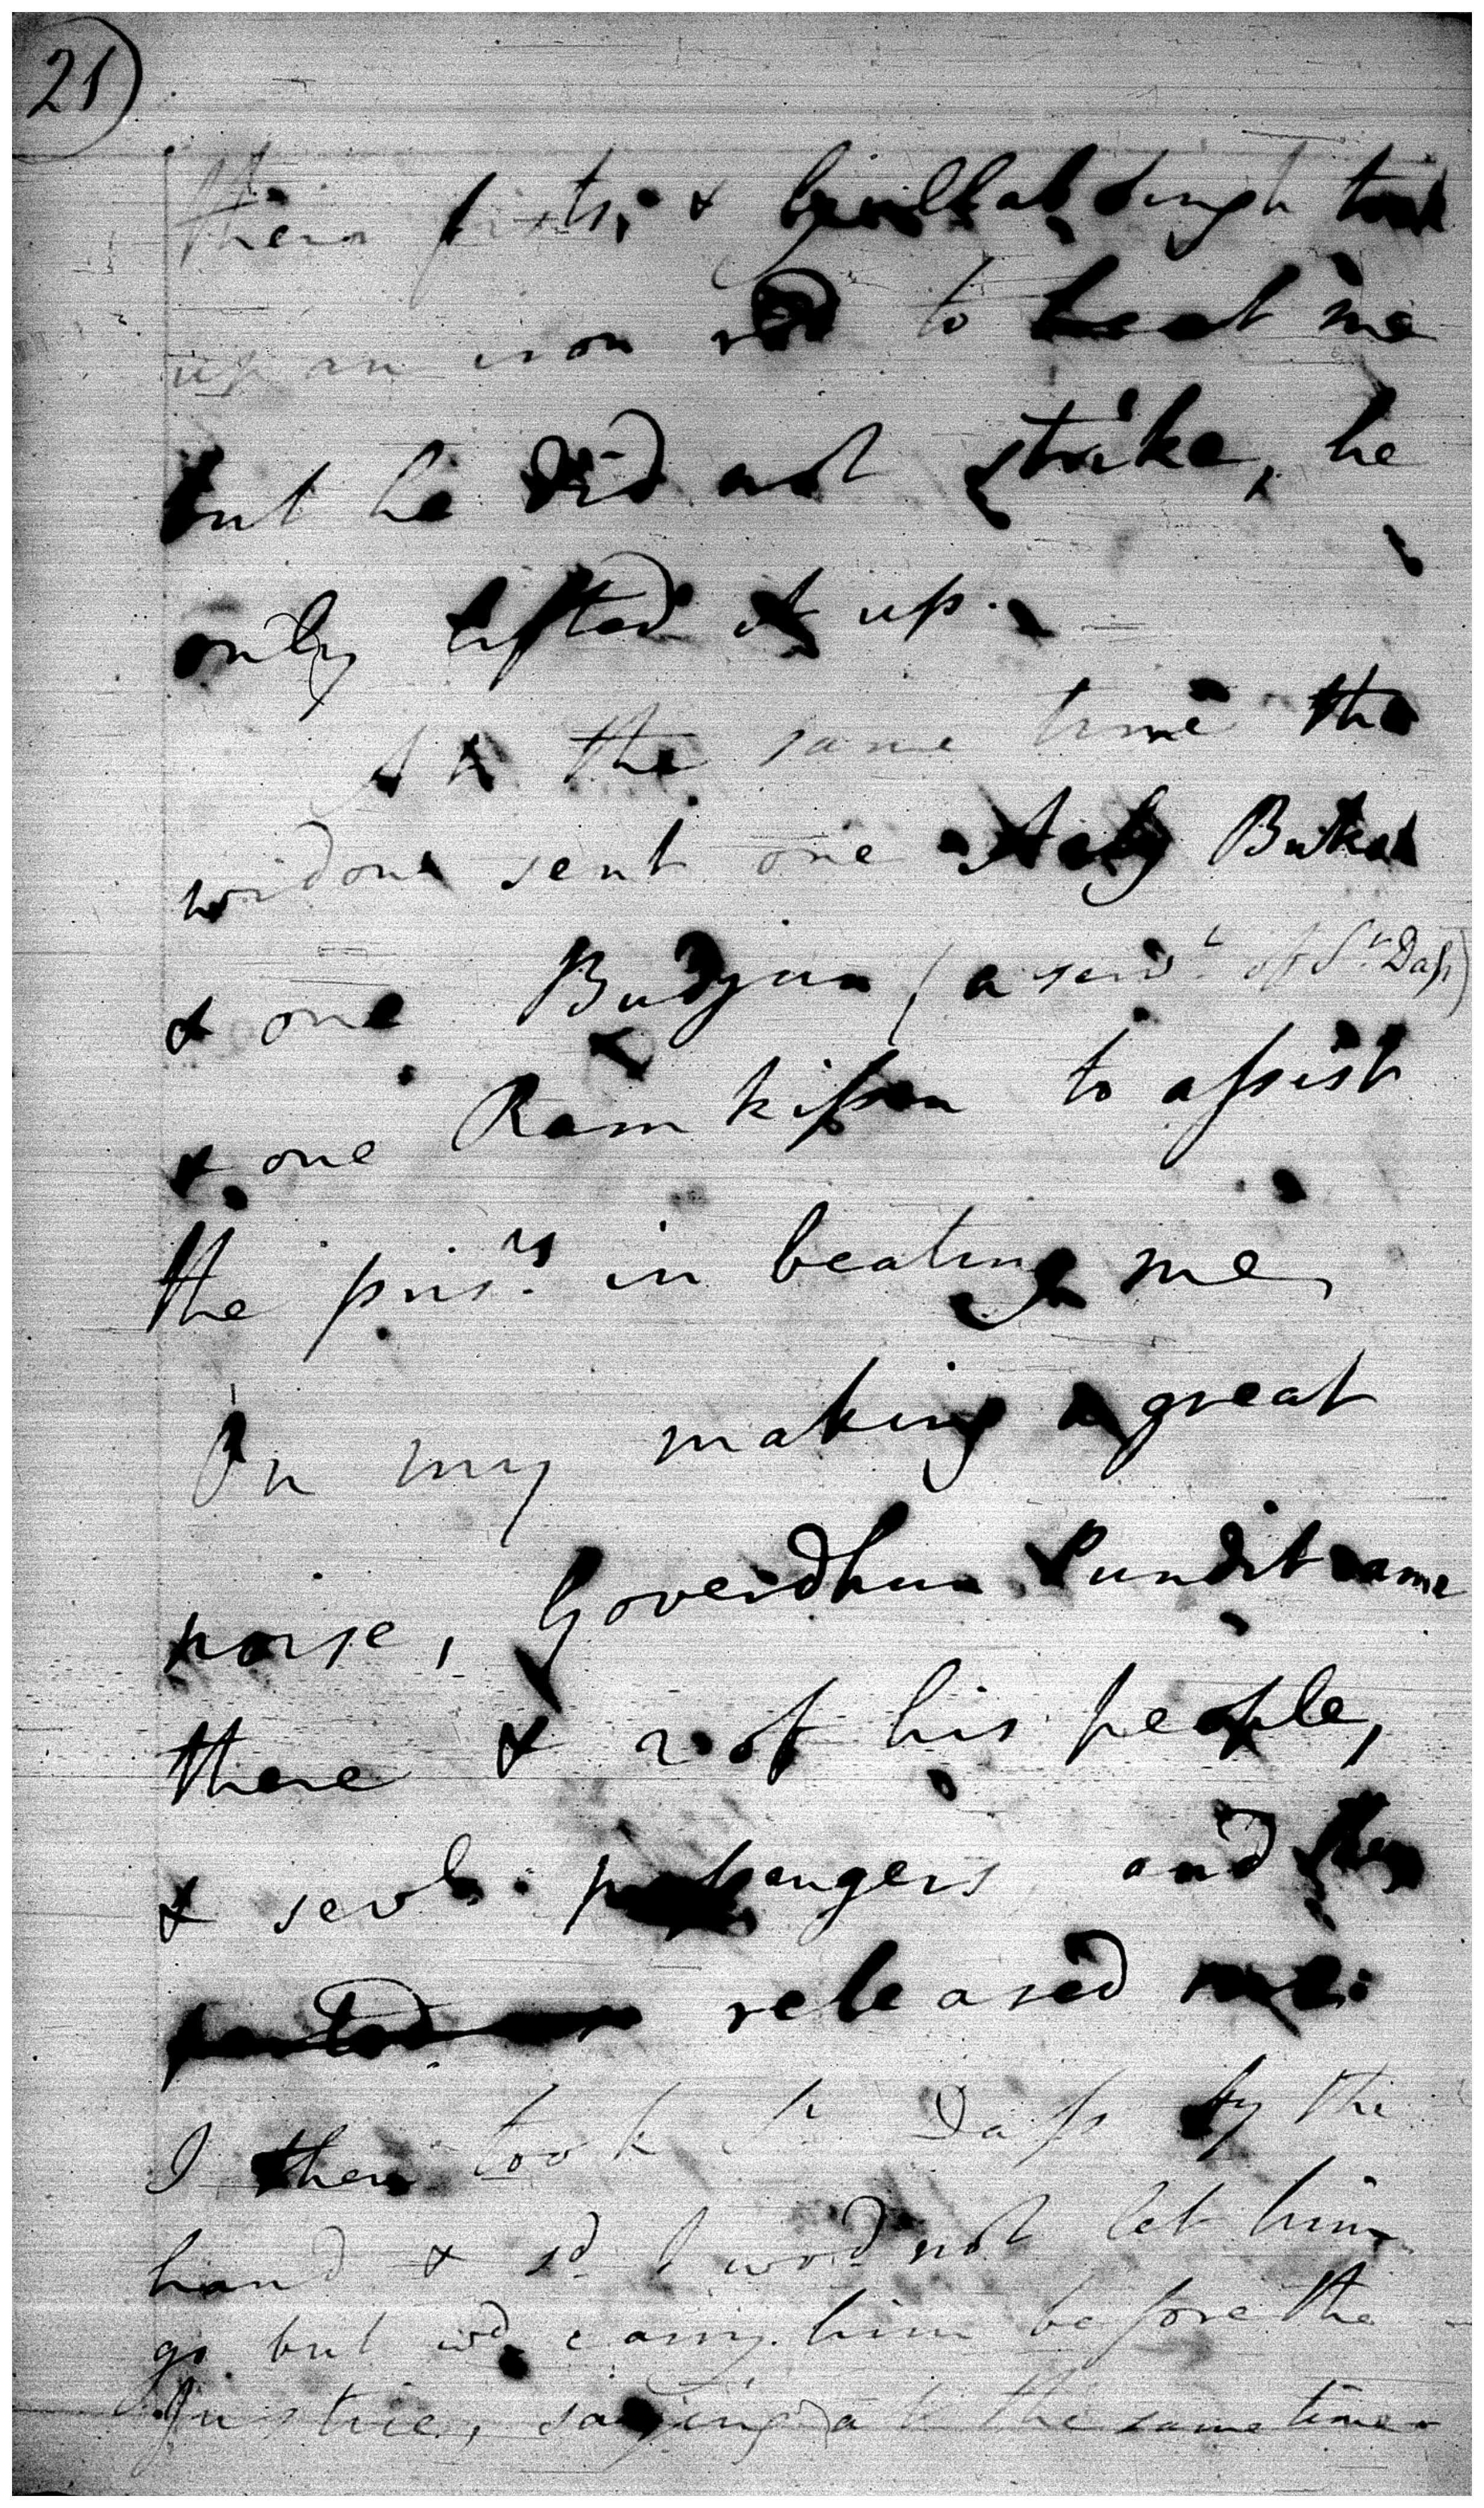 21
their fists, & Gullab Singh took
up an iron rod to beat me
but he did not strike, he
only lifted it up.
At the same time the
widow sent one Buksh
& one Budjun (a servt. of St. Dass)
& one Ram kissen to assist
the prisrs. in beating me,
On my making a great
noise, Goverdhun Pundit came
there & 2 of his people,
& sevl. passengers and they
released me.
I then took St. Dass by the
hand & sd. I wod. not let him
go but wd. carry him before the
Justice, saying at the same time